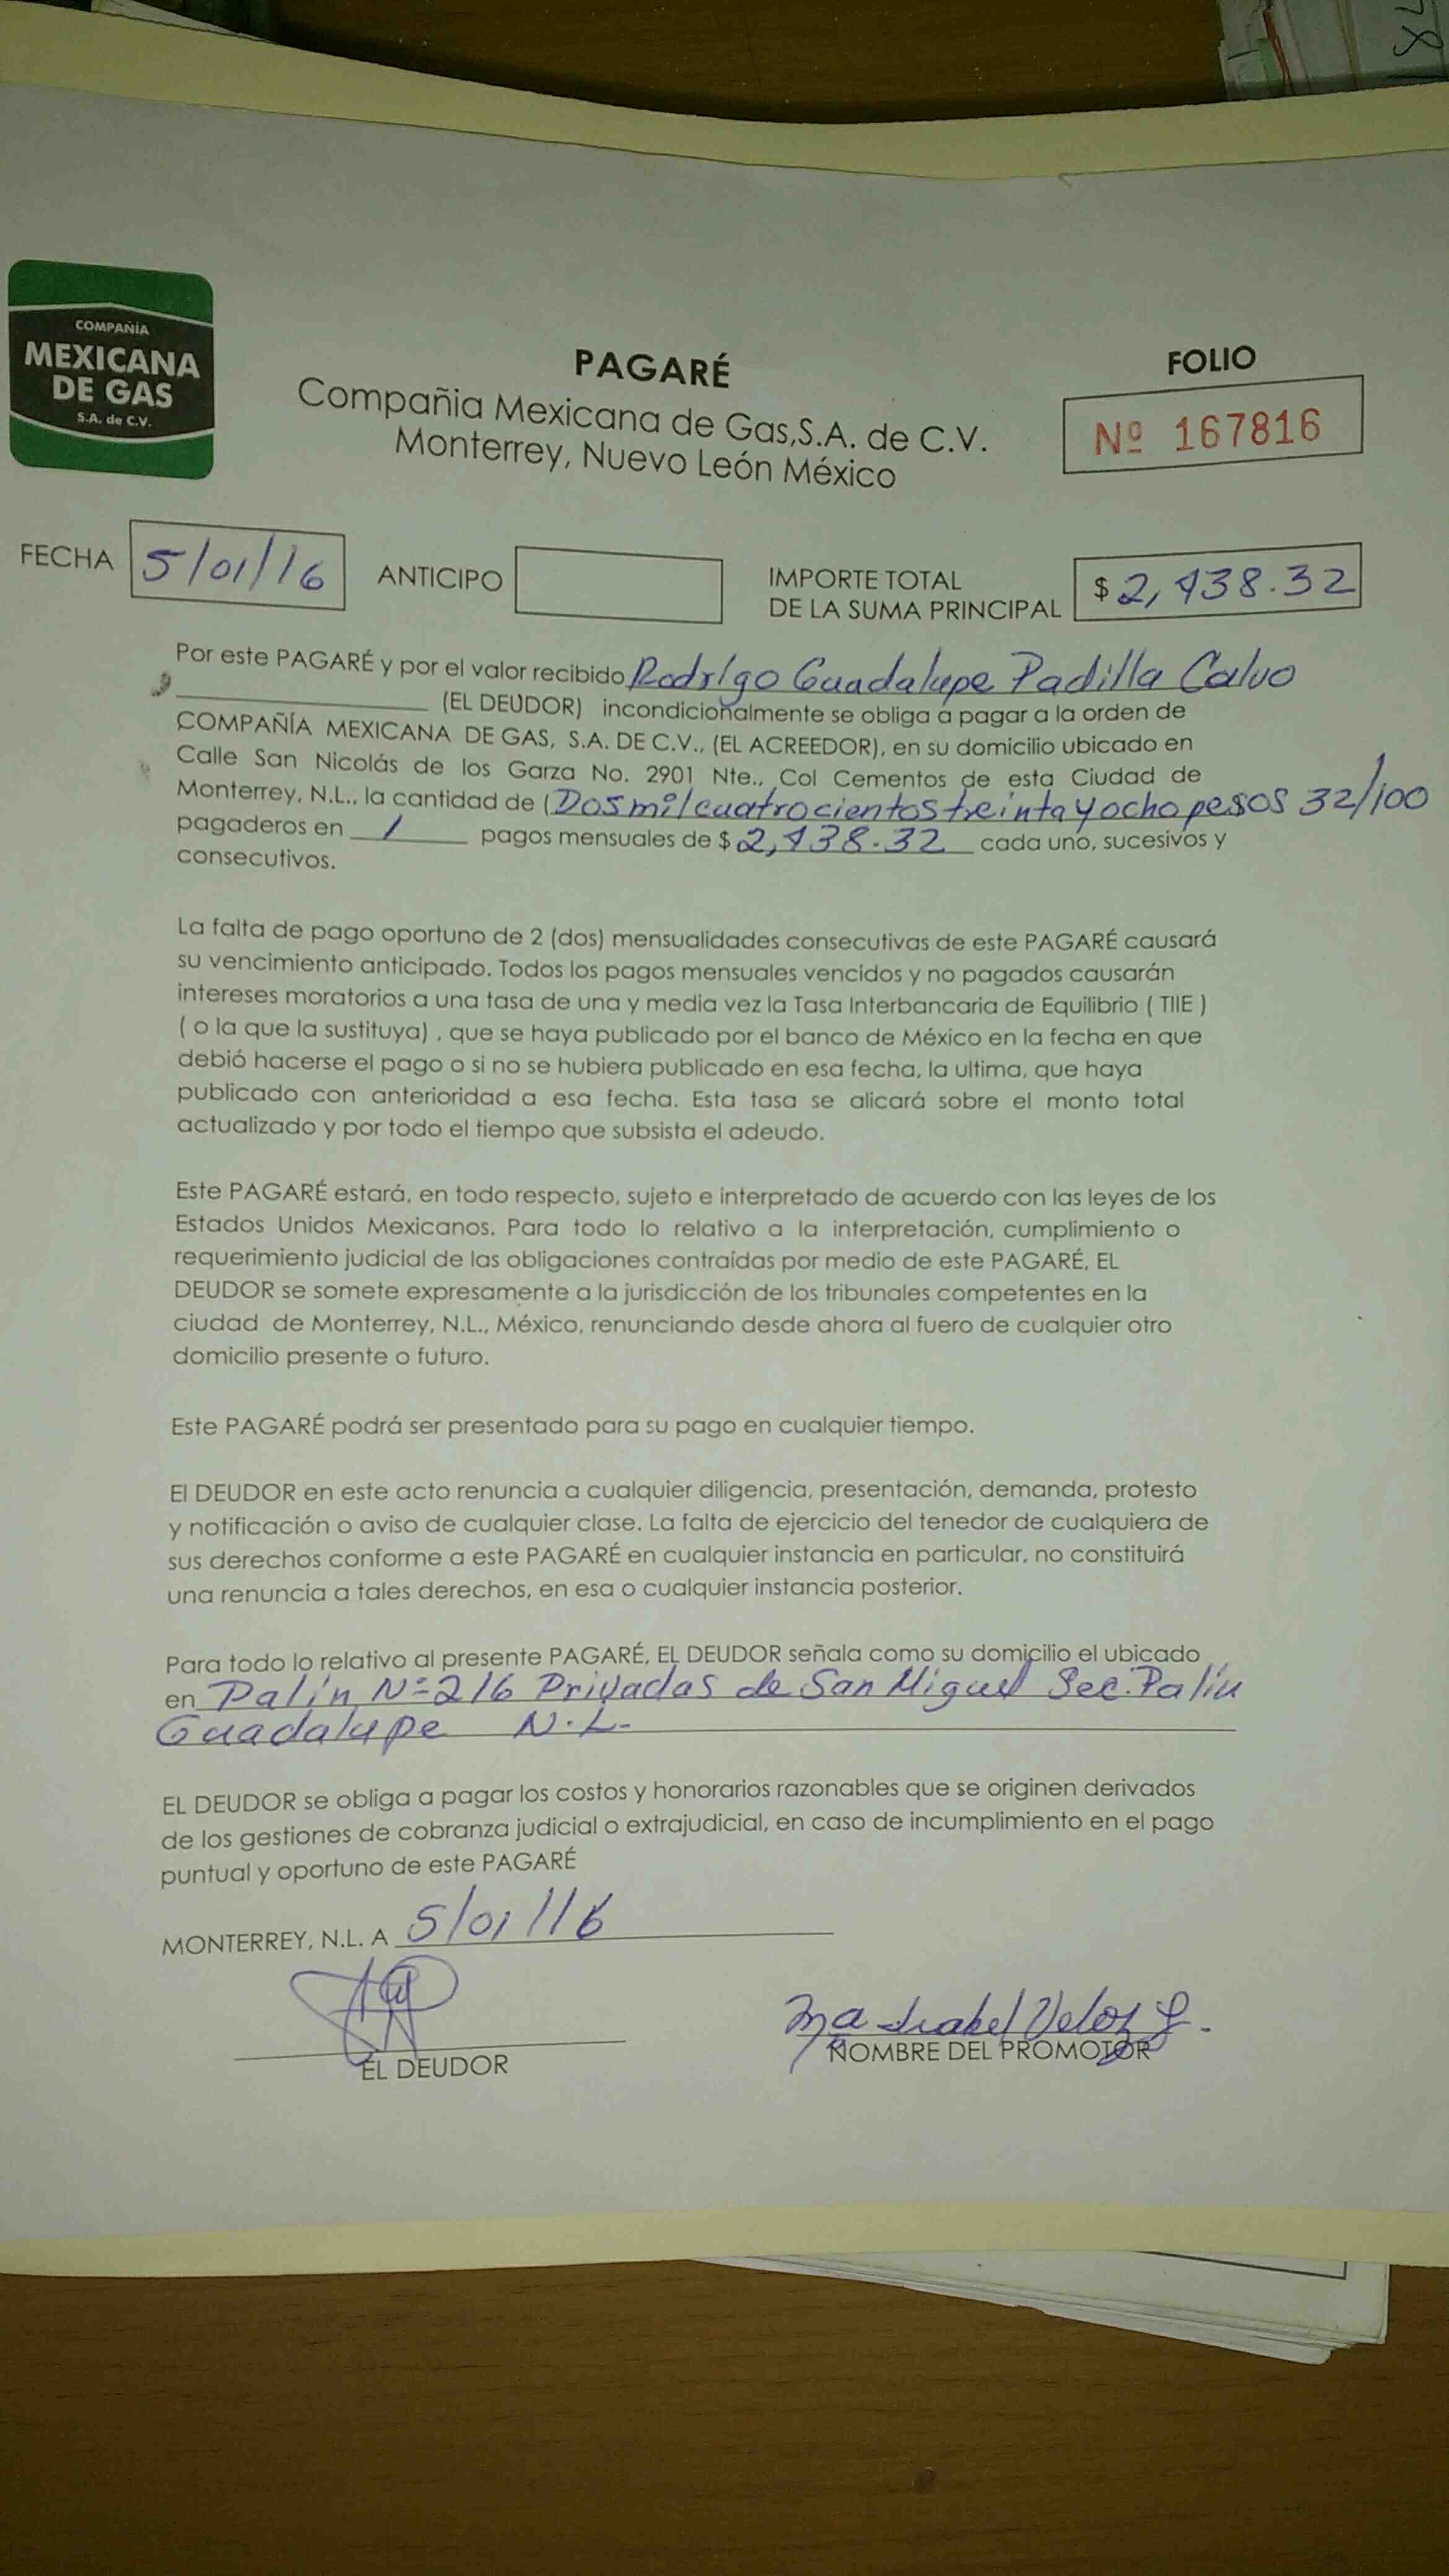 COMPAÑÍA
MEXICANA
DE GAS
S.A. de C.V.
PAGARÉ
Compañia Mexicana de Gas,S.A. de C.V.
Monterrey, Nuevo León México
FOLIO
Nº 167816
FECHA 5/01/16 ANTICIPO IMPORTE TOTAL
DE LA SUMA PRINCIPAL $ 2,438.32
Por este PAGARÉ y por el valor recibido Rodrigo Guadalupe Padilla Calvo
(EL DEUDOR) incondicionalmente se obliga a pagar a la orden de
COMPAÑÍA MEXICANA DE GAS, S.A. DE C.V., (EL ACREEDOR), en su domicilio ubicado en
Calle San Nicolás de los Garza No. 2901 Nte., Col Cementos de esta Ciudad de
Monterrey, N.L., la cantidad de (Dos mil cuatrocientos treinta y ocho pesos 32/100
pagaderos en 1 pagos mensuales de $ 2,438.32 cada uno, sucesivos y
consecutivos.
La falta de pago oportuno de 2 (dos) mensualidades consecutivas de este PAGARÉ causará
su vencimiento anticipado. Todos los pagos mensuales vencidos y no pagados causarán
intereses moratorios a una tasa de una y media vez la Tasa Interbancaria de Equilibrio ( TIIE )
( o la que la sustituya) , que se haya publicado por el banco de México en la fecha en que
debió hacerse el pago o si no se hubiera publicado en esa fecha, la ultima, que haya
publicado con anterioridad a esa fecha. Esta tasa se alicará sobre el monto total
actualizado y por todo el tiempo que subsista el adeudo.
Este PAGARÉ estará, en todo respecto, sujeto e interpretado de acuerdo con las leyes de los
Estados Unidos Mexicanos. Para todo lo relativo a la interpretación, cumplimiento o
requerimiento judicial de las obligaciones contraídas por medio de este PAGARÉ, EL
DEUDOR se somete expresamente a la jurisdicción de los tribunales competentes en la
ciudad de Monterrey, N.L., México, renunciando desde ahora al fuero de cualquier otro
domicilio presente o futuro.
Este PAGARÉ podrá ser presentado para su pago en cualquier tiempo.
El DEUDOR en este acto renuncia a cualquier diligencia, presentación, demanda, protesto
y notificación o aviso de cualquier clase. La falta de ejercicio del tenedor de cualquiera de
sus derechos conforme a este PAGARÉ en cualquier instancia en particular, no constituirá
una renuncia a tales derechos, en esa o cualquier instancia posterior.
Para todo lo relativo al presente PAGARÉ, EL DEUDOR señala como su domicilio el ubicado
en Palín Nº 216 Privadas de San Miguel Sec. Palín
Guadalupe N.L.
EL DEUDOR se obliga a pagar los costos y honorarios razonables que se originen derivados
de los gestiones de cobranza judicial o extrajudicial, en caso de incumplimiento en el pago
puntual y oportuno de este PAGARÉ
MONTERREY, N.L. A 5/01/16
Ma Isabel Veloz G.
EL DEUDOR NOMBRE DEL PROMOTOR